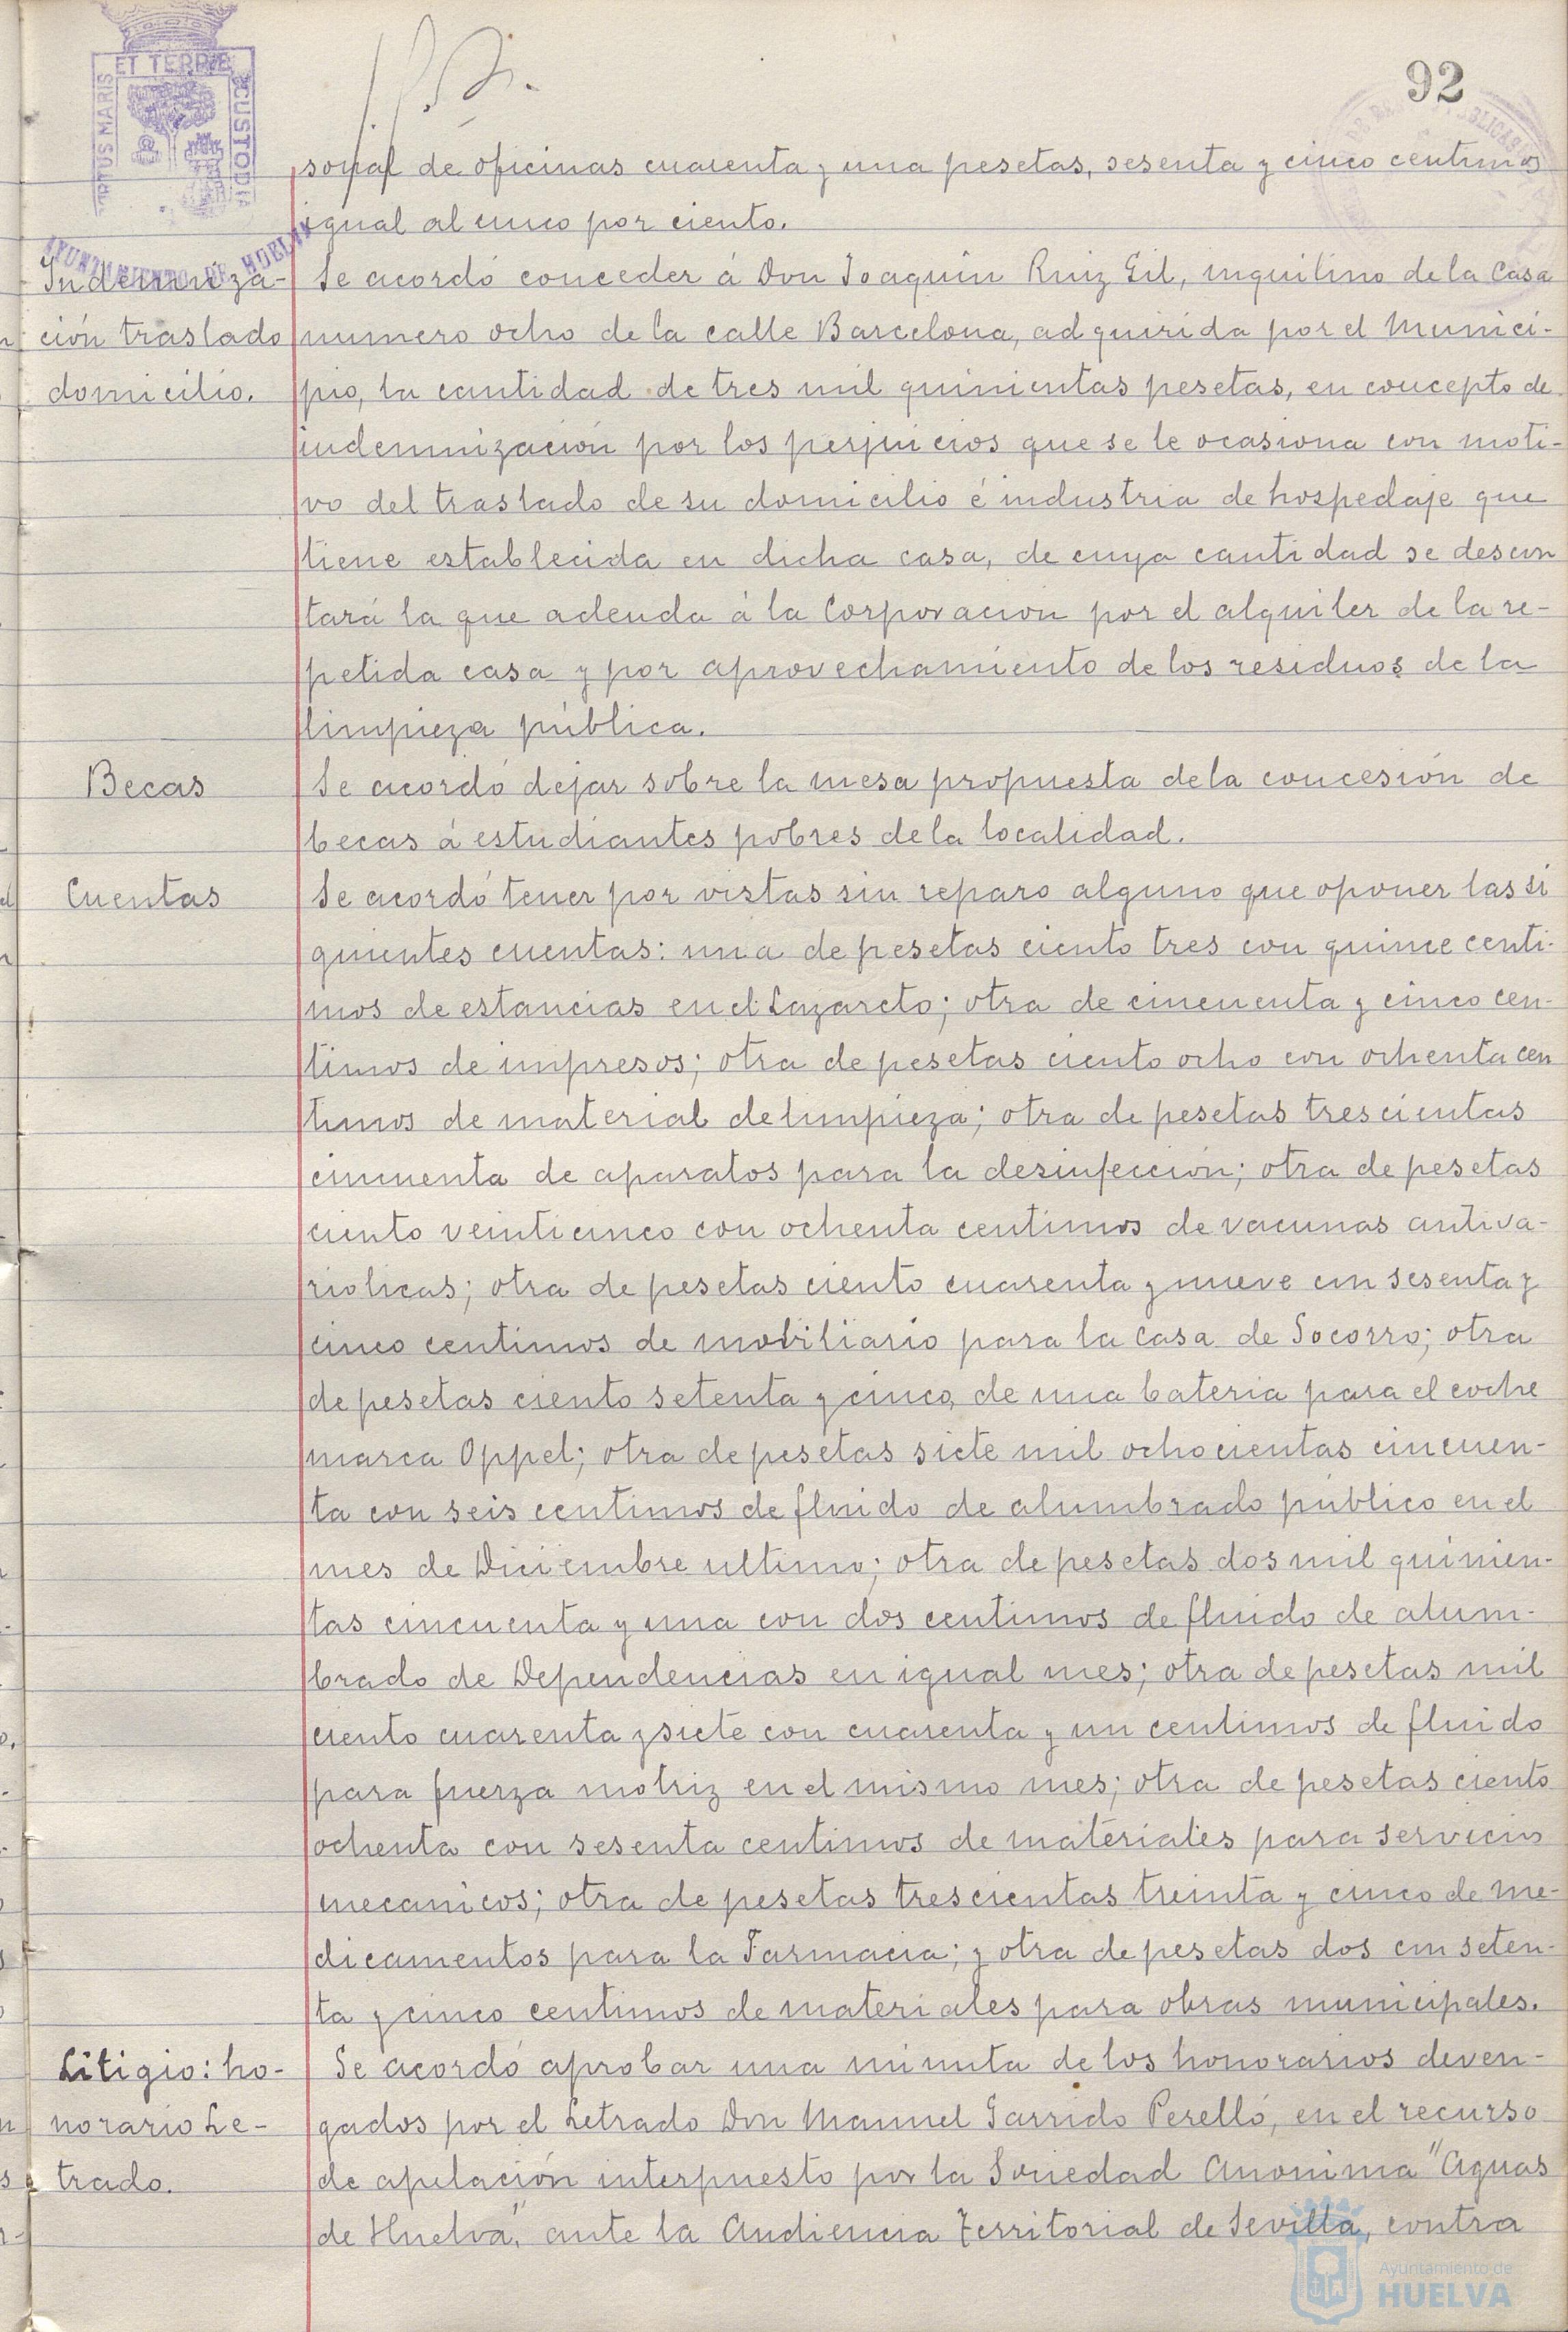 92
ET TERRÆ
CUSTODIA
MARIS
AYUNTAMIENTO DE HUELVA
sonal de oficinas cuarenta y una pesetas, sesenta y cinco centimos
igual al cinco por ciento.
Indemniza-
ción traslado
domicilio.
Se acordó conceder á Don Joaquin Ruiz Gil, inquilino de la Casa
numero ocho de la calle Barcelona, adquirida por el Munici-
pio, la cantidad de tres mil quinientas pesetas, en concepto de
indemnización por los perjuicios que se le ocasiona con moti-
vo del traslado de su domicilio é industria de hospedaje que
tiene establecida en dicha casa, de cuya cantidad se descon
tará la que adeuda á la Corporacion por el alquiler de la re-
petida casa y por aprovechamiento de los residuos de la
limpieza pública.
Becas
Se acordó dejar sobre la mesa propuesta de la concesión de
becas á estudiantes pobres de la localidad.
Cuentas
Se acordó tener por vistas sin reparo alguno que oponer las si
guientes cuentas: una de pesetas ciento tres con quince centi-
mos de estancias en el Lazareto; otra de cincuenta y cinco cen-
timos de impresos; otra de pesetas ciento ocho con ochenta cen
timos de material de limpieza; otra de pesetas trescientas
cincuenta de aparatos para la desinfección; otra de pesetas
ciento veinticinco con ochenta centimos de vacunas antiva-
riolicas; otra de pesetas ciento cuarenta y nueve con sesenta y
cinco centimos de mobiliario para la Casa de Socorro; otra
de pesetas ciento setenta y cinco, de una bateria para el coche
marca Oppel; otra de pesetas siete mil ochocientas cincuen-
ta con seis centimos de fluido de alumbrado público en el
mes de Diciembre ultimo; otra de pesetas dos mil quinien-
tas cincuenta y una con dos centimos de fluido de alum-
brado de Dependencias en igual mes; otra de pesetas mil
ciento cuarenta y siete con cuarenta y un centimos de fluido
para fuerza motriz en el mismo mes; otra de pesetas ciento
ochenta con sesenta centimos de materiales para servicios
mecanicos; otra de pesetas trescientas treinta y cinco de me-
dicamentos para la Farmacia; y otra de pesetas dos con seten-
ta y cinco centimos de materiales para obras municipales.
Litigio: ho-
norario Le-
trado.
Se acordó aprobar una minuta de los honorarios deven-
gados por el Letrado Don Manuel Garrido Perelló, en el recurso
de apelación interpuesto por la Sociedad Anonima "Aguas
de Huelva", ante la Audiencia Territorial de Sevilla, contra
Ayuntamiento de
HUELVA